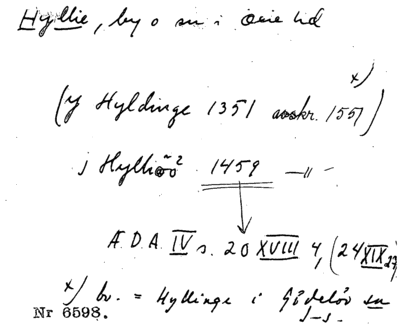 Hyllie, by o sn i Oxie hd
x)
(y Hyldinge 1351 avskr. 1551)
j Hylliøø 1459 —"—
Æ.D.A. IV s. 20 XVIII 4, (24 XIX 27)
x) bv. = Hyllinge i Gödelöv sn
Nr 6598.